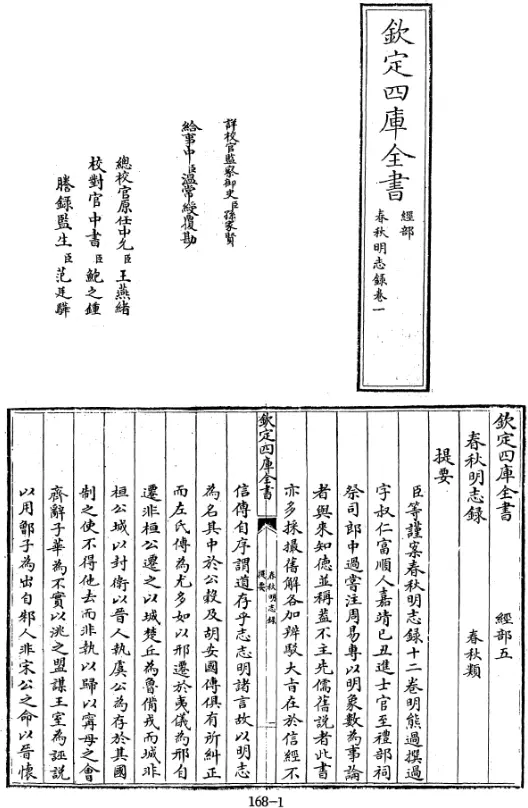 欽定四庫全書
經部
春秋明志錄卷一
詳校官監察御史臣孫家賢
給事中臣溫常綬覆勘
總校官原任中允臣王燕緒
校對官中書臣鮑之鍾
謄錄監生臣范廷驊
欽定四庫全書 經部五
春秋明志錄 春秋類
提要
臣等謹案春秋明志錄十二卷明熊過撰過
字叔仁富順人嘉靖己丑進士官至禮部祠
祭司郎中過嘗注周易專以明象數為事論
者與來知德並稱蓋不主先儒舊說者此書
亦多採摭舊解各加辨駁大旨在於信經不
欽定四庫全書
春秋明志錄
提要
二
信傳自序謂道存乎志志明諸言故以明志
為名其中於公穀及胡安國傳俱有所糾正
而左氏傳為尤多如以邢遷於夷儀為邢自
遷非桓公遷之以城楚丘為魯備戎而城非
桓公城以封衛以晉人執虞公為存於其國
制之使不得他去而非執以歸以甯母之會
齊辭子華為不實以洮之盟謀王室為誣說
以用鄫子為出自邾人非宋公之命以晉懷
168-1